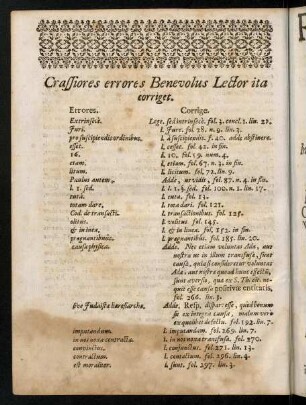 Crassiores errores Benevolus Lector ita
corriget.
Errores. Corrige.
Extrinsecè. Lege. sed intrinsecè. fol. 3. concl. 1. lin. 21.
Juri. l. Jure. fol. 28. n. 9. lin. 3.
pro suscipiendis ordinibus. l. à suscipiendis. f. 40. adde abstinere.
esset. l. esset. fol. 42. in fin.
16. l. 10. fol. 19. num. 4.
etiam. l. etiam. fol. 67. n. 3. in fin.
litum. l. licitum. fol. 72. lin. 9.
Paulus autem. Adde, urvidis. fol. 87. n. 4. in fin.
l. 1. sed. l. l. 1. §. sed. fol. 100. n. 1. lin. 17.
tota. l. rota. fol. 13.
totam dare. l. rota dari. fol. 121.
Cod. de transacti. l. transactionibus. fol. 125.
ultus. l. vultus. fol. 145.
& in inea. l. & in linea. fol. 152. in fin.
pregnantibus. l. pregnantibus. fol. 185. lin. 20.
causa physica. Adde. Nec etiam voluntas adest, aut
nostra ne in illum transfusa, sunt
causa, quia si consideretur voluntas
Ada: aut nostra quoad hunc effectũ,
sunt aversa, qua ex S. Th. etc. ne-
quit esse causa positivæ entitatis,
fol. 266. lin. 3.
pro Judaista haresiarcha. Adde. Resp. disp. ar. esse, quod bonum
sit ex integra causa, malum verò
ex quolibet defectu. fol. 193. lin. 7.
imputandum. l. imputandam. fol. 269. lin. 7.
in nos nona contracta. l. in nos non à transfusa. fol. 270.
convinctus. l. conjunctus. fol. 271. lin. 13.
contractum. l. contactum. fol. 296. lin. 4.
est moraliter. l. sunt. fol. 297. lin. 3.